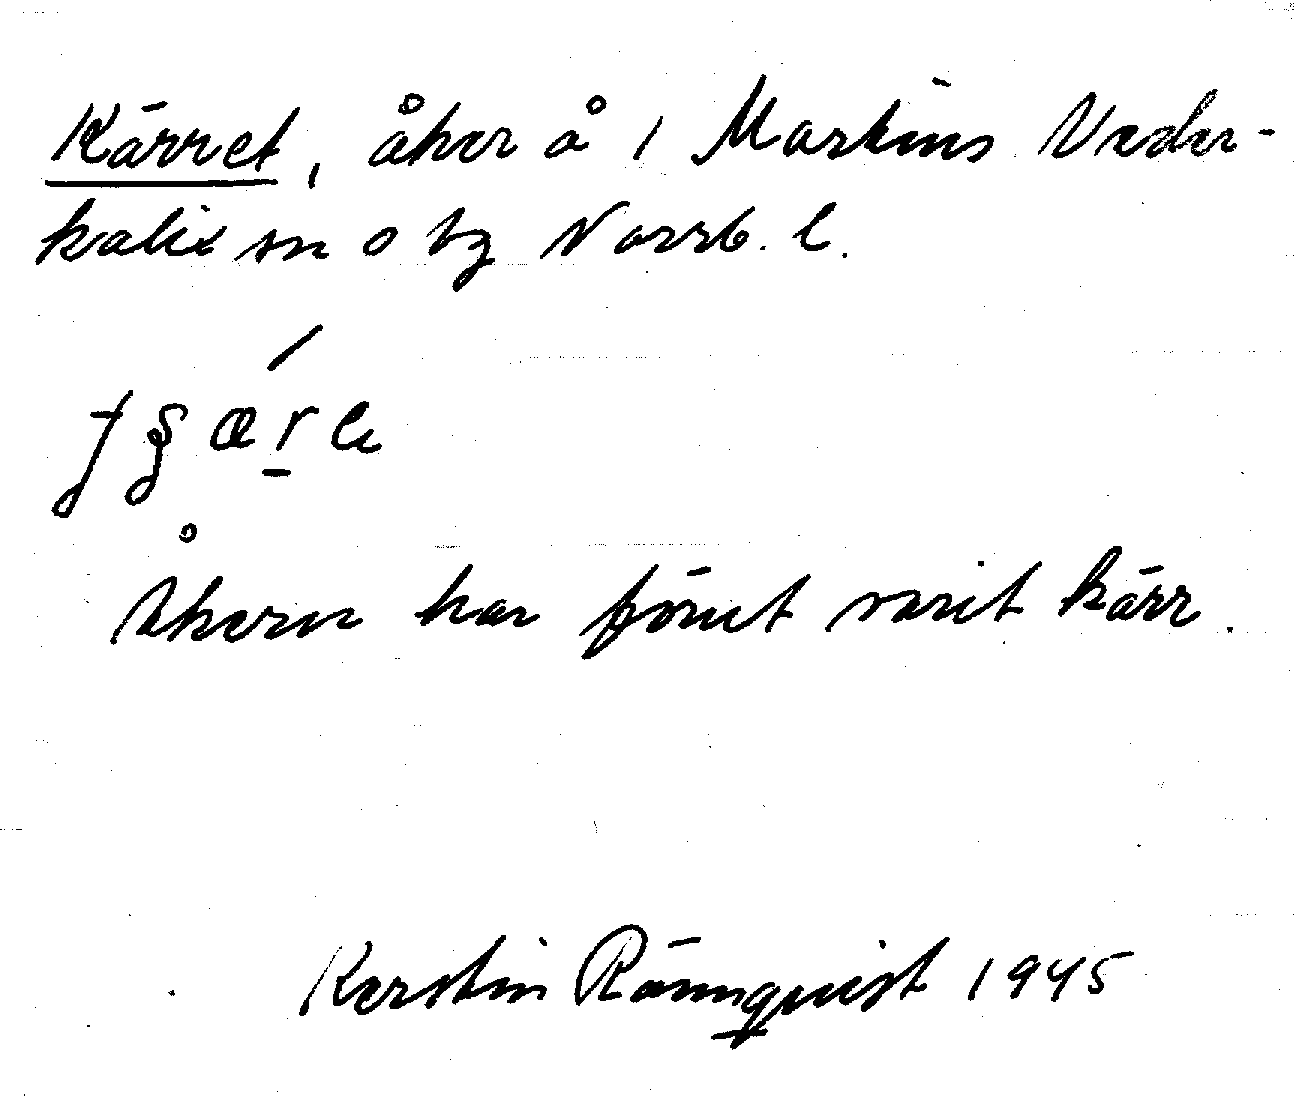 Kärret, åker å 1 Martins Neder-
kalix sn o by Norrb. l.
Åkern har förut varit kärr.
Kerstin Rönnquist 1945